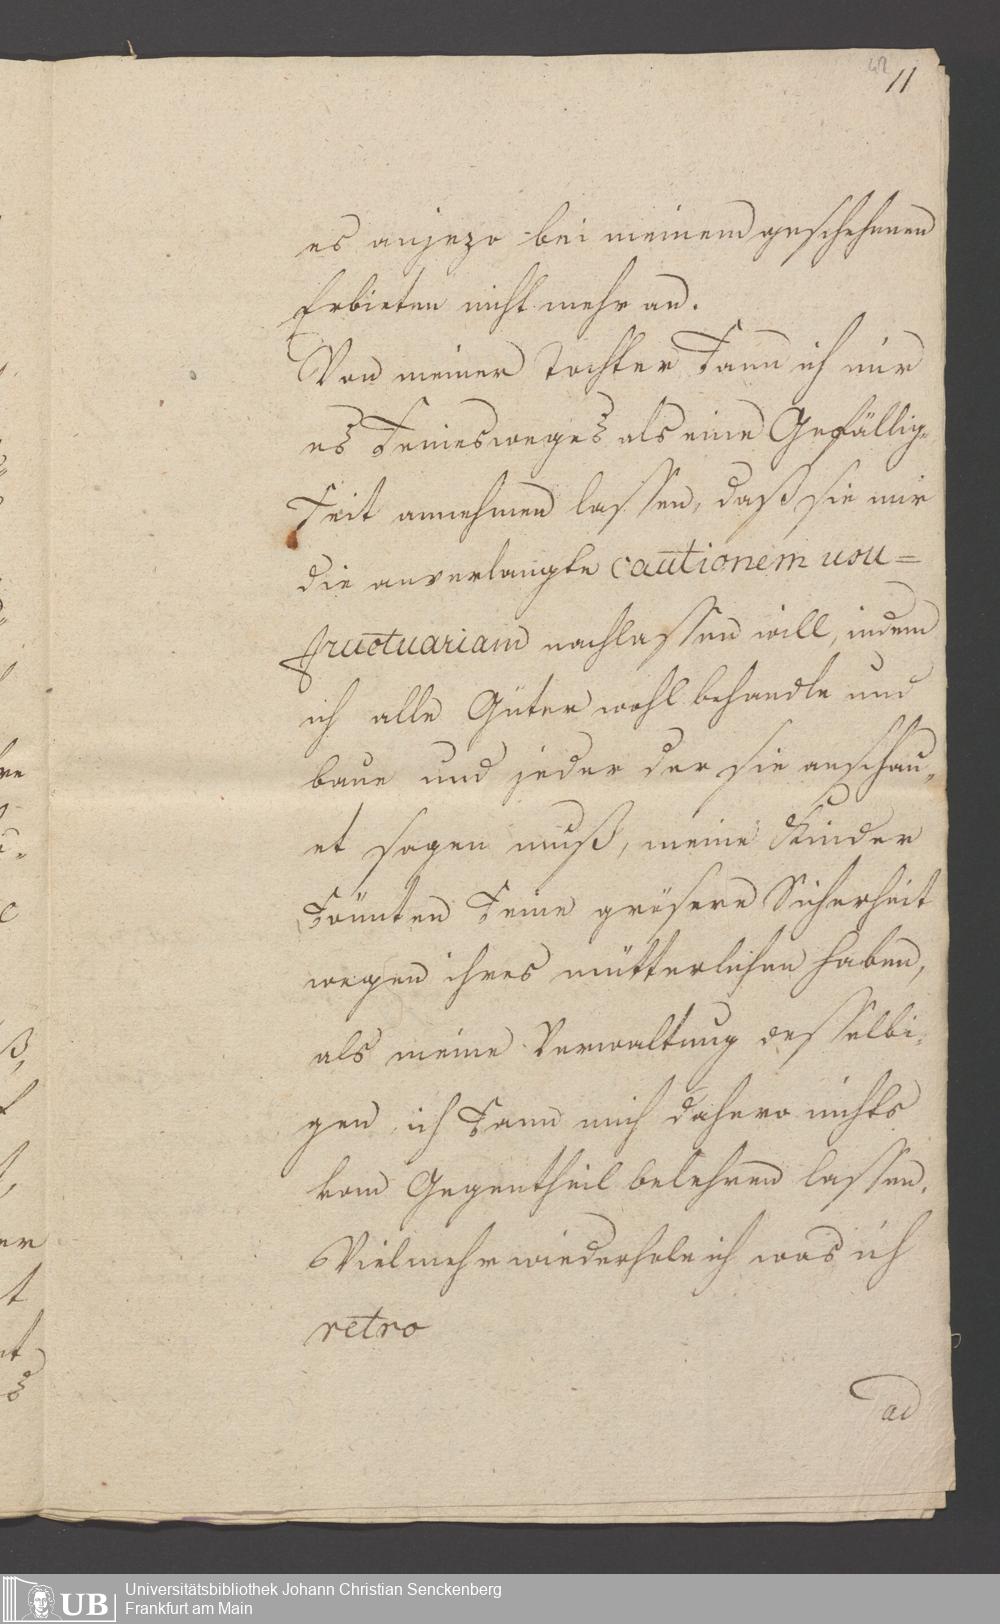 42
11
es anjezo bei meinem geschehenen
Erbieten nicht mehr an.
Von meiner Tochter kann ich mir
es keinesweges als eine Gefällig-
keit annehmen lassen, daß sie mir
die anverlangte cautionem usu=
fructuariam nachlassen will, indem
ich alle Güter wohl behandle und
baue und jeder der sie anschau-
et sagen muß, meine Kinder
könnten keine grösere Sicherheit
wegen ihres mütterlichen haben,
als meine Verwaltung desselbi-
gen, ich kann mich dahero nichts
vom Gegentheil belehren lassen.
Vielmehr wiederhole ich was ich
retro
ad
Universitätsbibliothek Johann Christian Senckenberg
Frankfurt am Main
UB